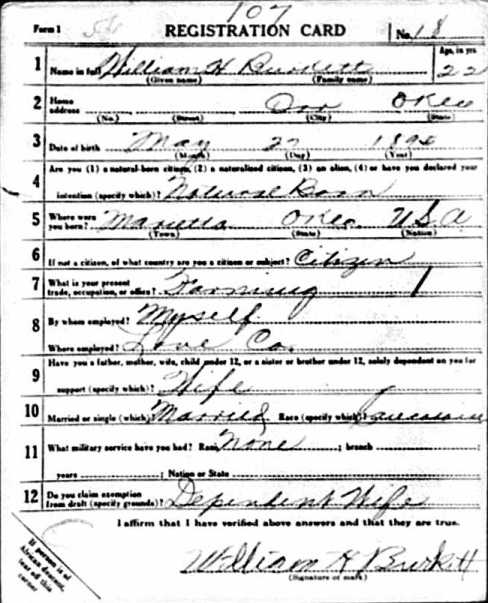 107
Form 1 REGISTRATION CARD No. 18
1 Name in full William H Burkett Age, in yrs. 22
(Given name) (Family name)
2 Home address Oso Okla
(No.) (Street) (City) (State)
3 Date of birth May 27 1894
(Month) (Day) (Year)
Are you (1) a natural-born citizen, (2) a naturalized citizen, (3) an alien, (4) or have you declared your
4 intention (specify which)? Natural Born
5 Where were you born? Marietta Okla. USA
(Town) (State) (Nation)
6 If not a citizen, of what country are you a citizen or subject? Citizen
7 What is your present trade, occupation, or office? Farming
8 By whom employed? Myself
Where employed? Love Co.
Have you a father, mother, wife, child under 12, or a sister or brother under 12, solely dependent on you for
9 support (specify which)? Wife
10 Married or single (which)? Married Race (specify which)? Caucasian
11 What military service have you had? Rank None ; branch ;
years ; Nation or State
12 Do you claim exemption from draft (specify grounds)? Dependent Wife
I affirm that I have verified above answers and that they are true.
William H Burkett
(Signature or mark)
If person is of
African descent,
tear off this
corner